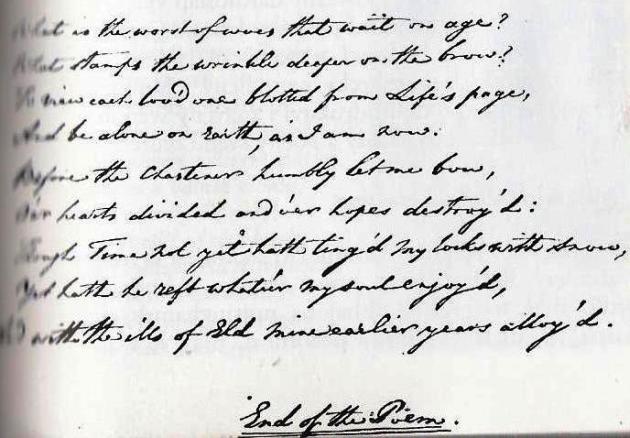 What is the worst of woes that wait on age?
What stamps the wrinkle deeper on the brow?
To view each lov'd one blotted from Life's page,
And be alone on Earth, as I am now.
Before the Chastener humbly let me bow,
O'er hearts divided and o'er hopes destroy'd:
Though Time not yet hath ting'd my locks with snow,
Yet hath he reft whate'er my soul enjoy'd,
And with the ills of Eld mine earlier years alloy'd.
End of the Poem.